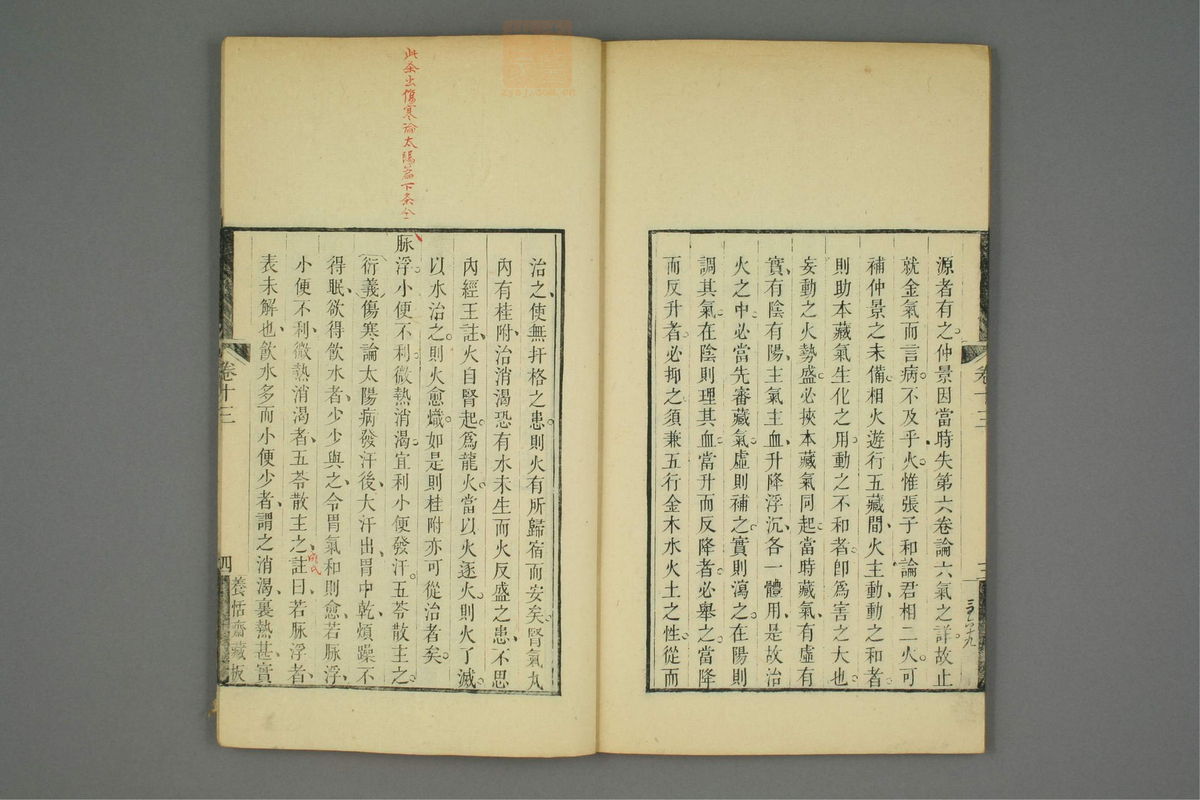 源者有之仲景因當時失第六卷論六氣之詳故止
就金氣而言病不及乎火惟張子和論君相二火可
補仲景之未備相火遊行五藏間火主動動之和者
則助本藏氣生化之用動之不和者卽爲害之大也
妄動之火勢盛必挾本藏氣同起當時藏氣有虛有
實有陰有陽主氣主血升降浮沉各一體用是故治
火之中必當先審藏氣虛則補之實則瀉之在陽則
調其氣在陰則理其血當升而反降者必舉之當降
而反升者必抑之須兼五行金木水火土之性從而
卷十三
三
治之使無扞格之患則火有所歸宿而安矣腎氣丸
內有桂附治消渴恐有水未生而火反盛之患不思
內經王註火自腎起爲龍火當以火逐火則火了滅
以水治之則火愈熾如是則桂附亦可從治者矣
脉浮小便不利微熱消渴宜利小便發汗五苓散主之
衍義傷寒論太陽病發汗後大汗出胃中乾煩躁不
得眠欲得飲水者少少與之令胃氣和則愈若脉浮
小便不利微熱消渴者五苓散主之註曰若脉浮者
表未解也飲水多而小便少者謂之消渴裏熱甚實
卷十三
四
養恬齋藏板
此条出傷寒論太陽篇下条仝
成氏